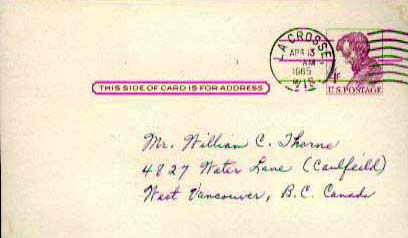 LA CROSSE
APR 13
AM
1965
WIS.
4¢
U.S. POSTAGE
THIS SIDE OF CARD IS FOR ADDRESS
Mr. William C. Thorne
4827 Water Lane (Caulfeild)
West Vancouver, B.C. Canada